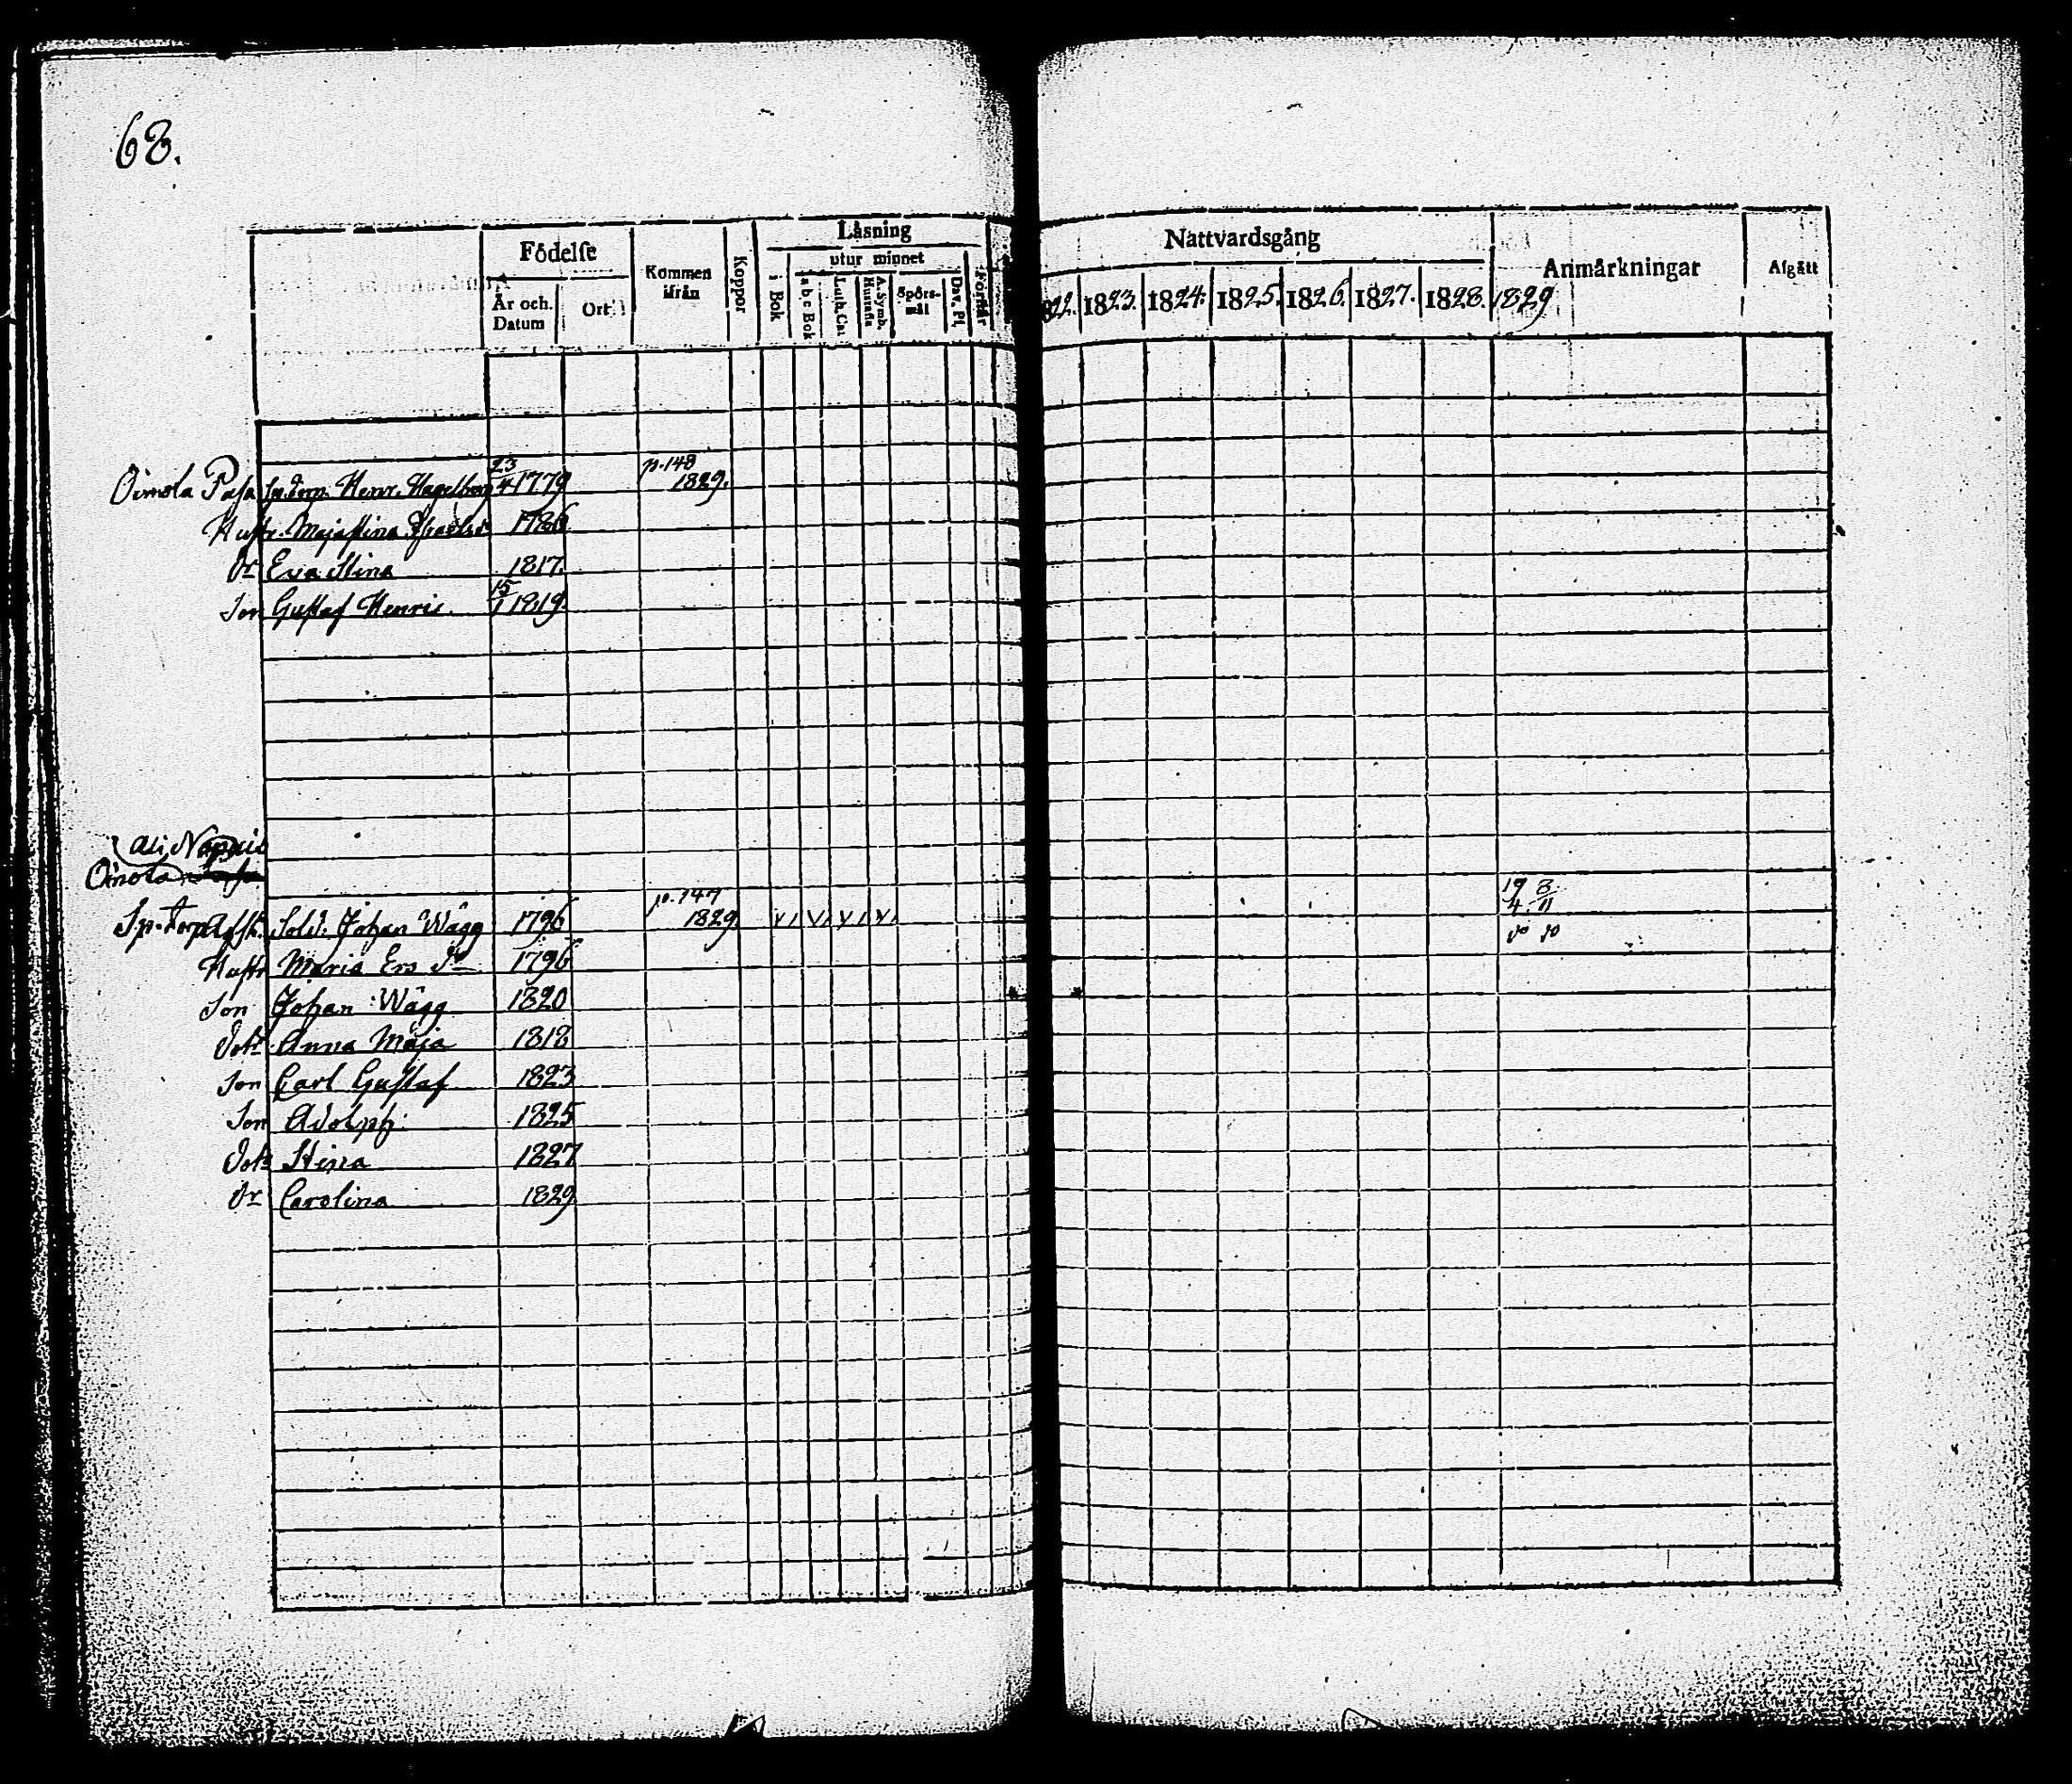 68.
Födelse Kommen ifrån Koppor Läsning Nattvardsgång Anmärkningar Afgått
utur minnet
År och Datum Ort i Bok a b c Bok Luth. Cat. A. Symb. Hustafla Spörsmål Dav. Ps. Förstår 1822. 1823. 1824. 1825. 1826. 1827. 1828. 1829
p. 148
Oimola Pasa Henr. Hagelberg 23/4 1779 1829.
Hustr. Majastina 1786
Dr Eva Stina 1817.
Son Gustaf Henric. 15/1 1819.
Oimola
p. 147 19/4 8/11
Sold. Johan Wägg 1796 1829. do do
Hustr Maria Ers Dr 1796
Son Johan Wägg 1820
Dotr Anna Maja 1818
Son Carl Gustaf 1823
Son Adolph 1825
Dotr Stina 1827
Dr Carolina 1829